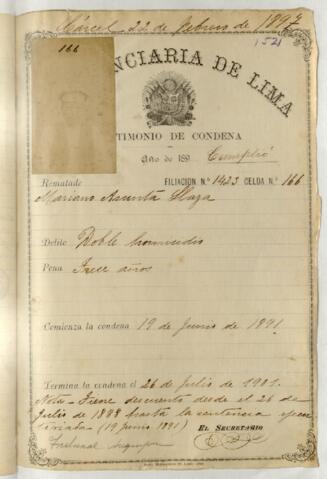 Cárcel - 22 de febrero de 1897
1521
166
NCIARIA DE LIMA
TIMONIO DE CONDENA
Año de 189 Cumplió
Rematado FILIACION N.º 1423 CELDA N.º 166
Mariano Asunta
Delito Doble homicidio
Pena Trece años
Comienza la condena 19 de Junio de 1891.
Termina la condena el 26 de Julio de 1901.
Nota - Tiene descuento desde el 26 de
Julio de 1888 hasta la sentencia ejecu
toriada (19 junio 1891) EL SECRETARIO
Tribunal